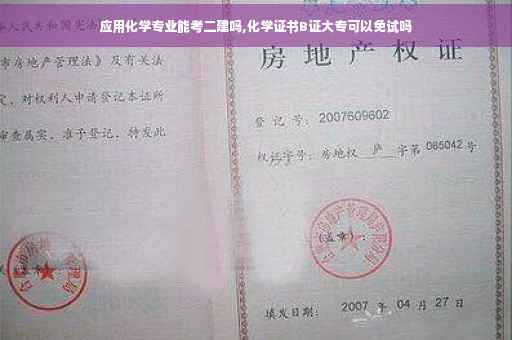 应用化学专业能考二建吗,化学证书B证大专可以免试吗
人民共和国宪法
市房地产管理法》及有关法
定，对权利人申请登记本证所
审查属实，准予登记，特发此
房地产权证
登记号：2007609602
权证字号：房地权 庐 字第 065042 号
(盖章)：
填发日期： 2007 年 04 月 27 日